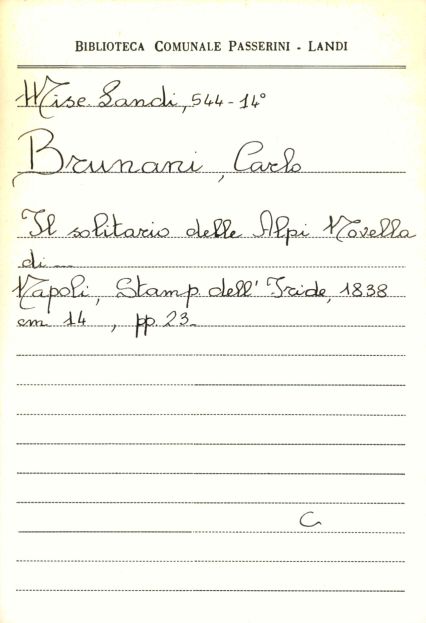 BIBLIOTECA COMUNALE PASSERINI - LANDI
Misc. Landi, 544 - 14°
Brunani, Carlo
Il solitario delle Alpi Novella
di ...
Napoli, Stamp. dell' Iride, 1838
cm 14 , pp. 23_
C